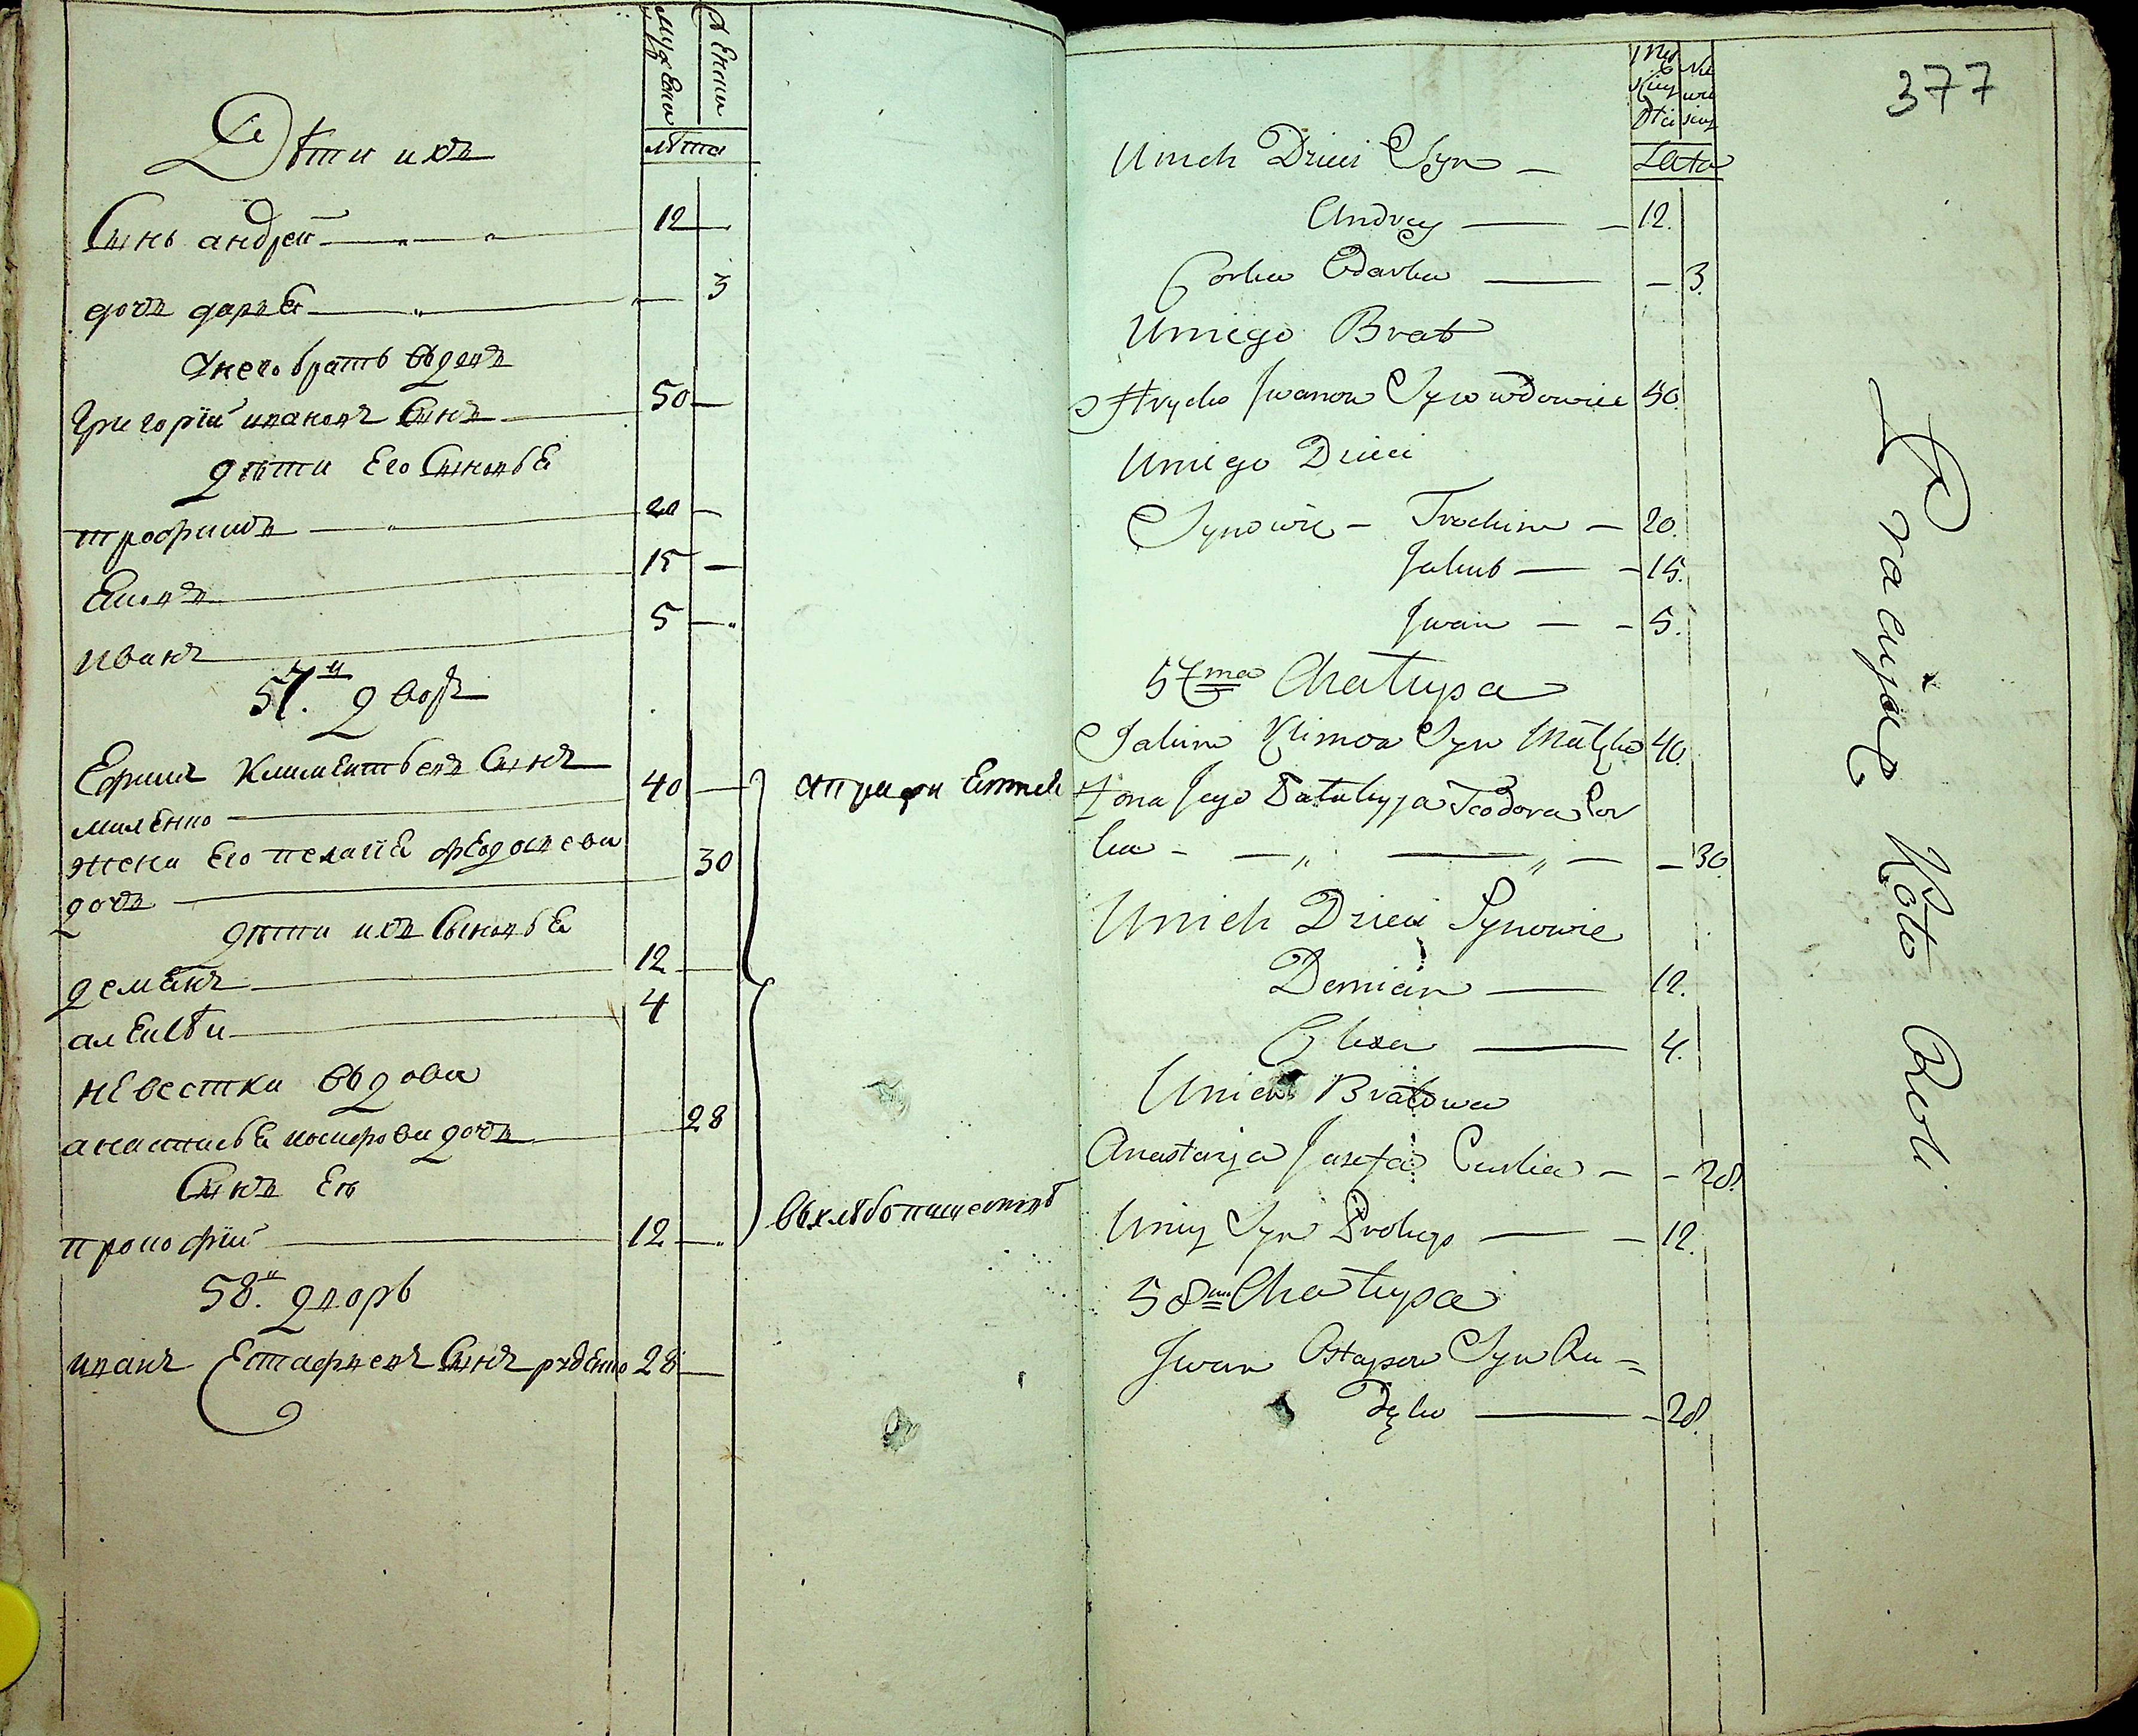 мужеска женска
лѣта
Дѣти ихъ
Сынъ андрей 12
дочь дарья 3
У него братъ вдовъ
Григорій ивановъ Сынъ 50
дѣти Его Сыновья
трофимъ 20
Яковъ 15
иванъ 5
57.й дворъ
Ефимъ Климентьевъ Сынъ 40
жена Его пелагія федосьева 30
дочь
дѣти ихъ Сыновья
демянъ 12
алексѣй 4
невестка вдова
анастасья иосифова дочь 28
Сынъ Ея
прокофій 12
вхлѣбопашествѣ
58.й дворъ
иванъ Естафьевъ Сынъ руденко 28
377
Lata
Unich Dzieci Syn
Andrey 12.
Corka Odarka 3.
Uniego Brat
Hrycko Iwanow Syn wdowiec 50.
Uniego Dzieci
Synowie Trochim 20.
Jakub 15.
Iwan 5.
57ma Chałupa
Jakim Klimow Syn 40.
Żona Jego Pałahyja Teodora Cor
ka 30.
Unich Dzieci Synowie
Demian 12.
Olexa 4.
Unich Bratowa
Anastazja Jozefa Curka 28.
Uniey Syn Prokop 12.
58ma Chałupa
Iwan Ostapow Syn Ru=
dęko 28.
Pracuję Koło Roli